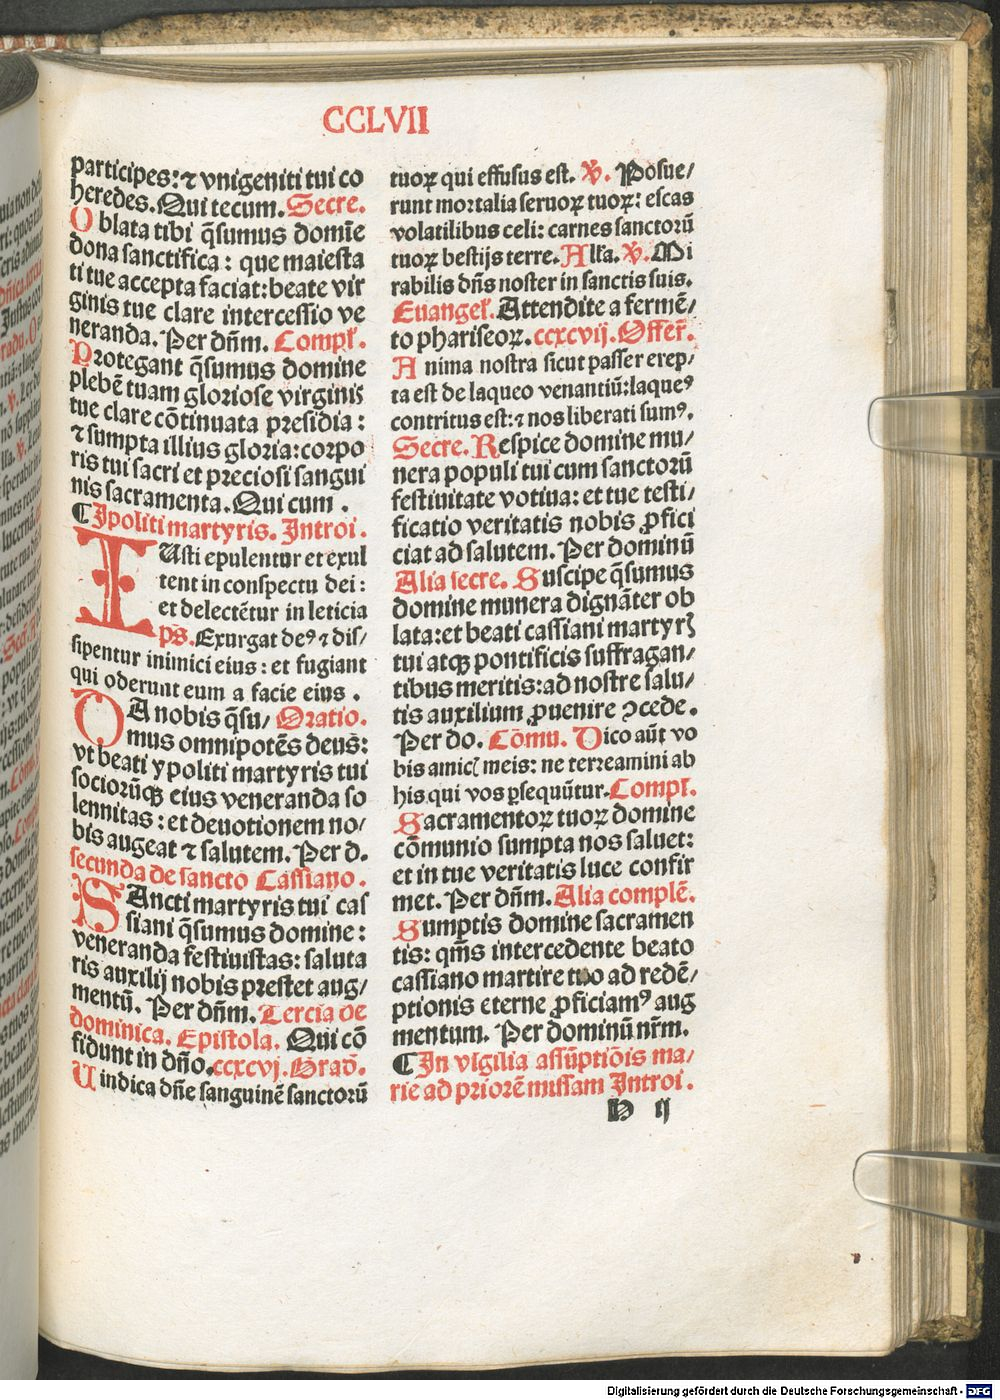 CCLVII
participes: ⁊ vnigeniti tui co
heredes. Qui tecum. Secre.
Oblata tibi q̃sumus domie
dona sanctifica: que maiesta
ti tue accepta faciat: beate vir
ginis tue clare intercessio ve
neranda. Per dñm. Compł.
Protegant q̃sumus domine
plebē tuam gloriose virginis
tue clare cōtinuata presidia:
⁊ sumpta illius gloria: corpo
ris tui sacri et preciosi sangui
nis sacramenta. Qui cum.
¶ Ipoliti martyris. Introi.
IUsti epulentur et exul
tent in conspectu dei:
et delectētur in leticia
ps̃. Exurgat deꝰ ⁊ dis/
sipentur inimici eius: et fugiant
qui oderunt eum a facie eius.
DA nobis q̃su/ Oratio.
mus omnipotēs deus:
vt beati ypoliti martyris tui
sociorūqꝫ eius veneranda so
lennitas: et deuotionem no/
bis augeat ⁊ salutem. Per d.
secunda de sancto Cassiano.
SAncti martyris tui cas
siani q̃sumus domine:
veneranda festiuitas: saluta
ris auxilij nobis prestet aug/
mentū. Per dñm. Tercia de
dominica. Epistola. Qui cō
fidunt in dño. ccxcvj. Grad̄.
Uindica dñe sanguinē sanctorū
tuoꝝ qui effusus est. ℣. Posue/
runt mortalia seruoꝝ tuoꝝ: escas
volatilibus celi: carnes sanctorū
tuoꝝ bestijs terre. Alła. ℣. Mi
rabilis dñs noster in sanctis suis.
Euangeł. Attendite a fermē/
to phariseoꝝ. ccxcvij. Offer̃.
Anima nostra sicut passer erep/
ta est de laqueo venantiū: laqueꝰ
contritus est: ⁊ nos liberati sumꝰ.
Secre. Respice domine mu/
nera populi tui cum sanctorū
festiuitate votiua: et tue testi/
ficatio veritatis nobis ꝓfici
ciat ad salutem. Per dominū
Alia secre. Suscipe q̃sumus
domine munera dignāter ob
lata: et beati cassiani martyrꝭ
tui atqꝫ pontificis suffragan/
tibus meritis: ad nostre salu/
tis auxilium ꝓuenire ꝯcede.
Per do. Cōmu. Dico aūt vo
bis amicꝭ meis: ne terreamini ab
his qui vos ꝑsequūtur. Compł.
Sacramentoꝝ tuoꝝ domine
cōmunio sumpta nos saluet:
et in tue veritatis luce confir
met. Per dñm. Alia complē.
Sumptis domine sacramen
tis: qm̃s intercedente beato
cassiano martire tuo ad redē/
ptionis eterne ꝓficiamꝰ aug
mentum. Per dominū nr̃m.
¶ In vigilia assūptiōis ma/
rie ad priorē missam Introi.
H ij
Digitalisierung gefördert durch die Deutsche Forschungsgemeinschaft - DFG